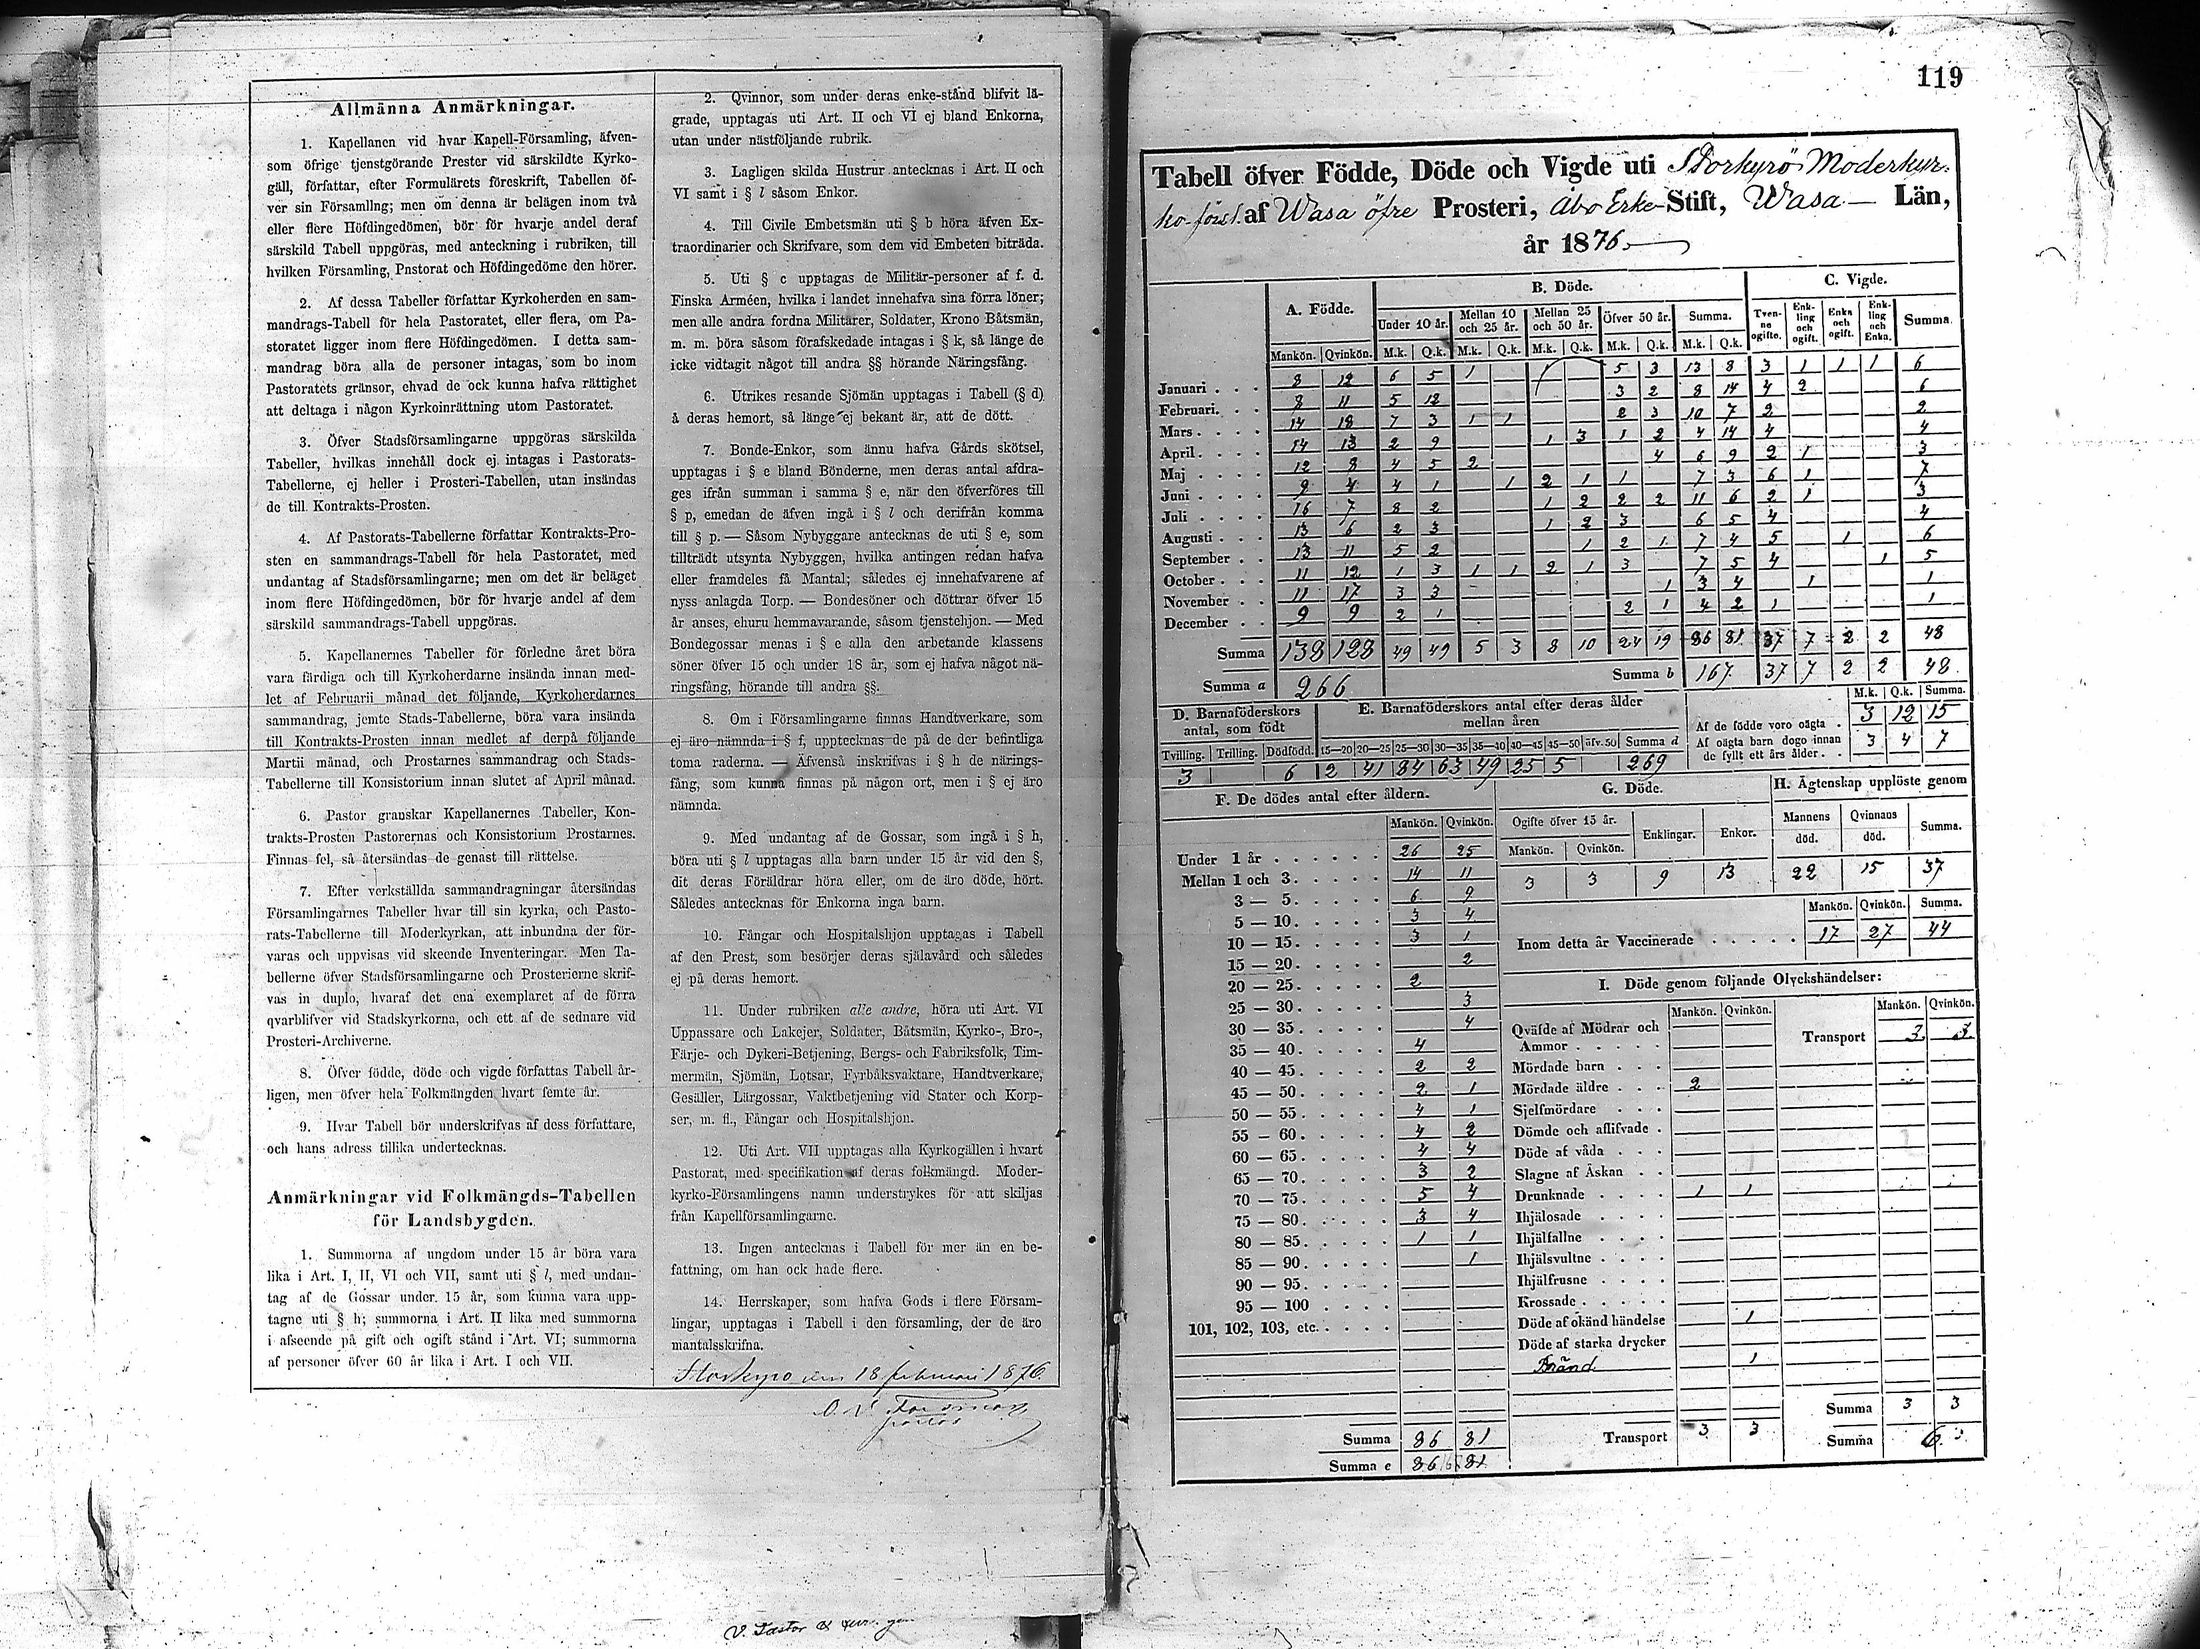 Allmänna Anmärkningar.
1. Kapellanen vid hvar Kapell-Församling, äfven-
som öfrige tjenstgörande Prester vid särskildte Kyrko-
gäll, författar, efter Formulärets föreskrift, Tabellen öf-
ver sin Församling; men om denna är belägen inom två
eller flere Höfdingedömen, bör för hvarje andel deraf
särskild Tabell uppgöras, med anteckning i rubriken, till
hvilken Församling, Pastorat och Höfdingedöme den hörer.
2. Af dessa Tabeller författar Kyrkoherden en sam-
mandrags-Tabell för hela Pastoratet, eller flera, om Pa-
storatet ligger inom flere Höfdingedömen. I detta sam-
mandrag böra alla de personer intagas, som bo inom
Pastoratets gränsor, ehvad de ock kunna hafva rättighet
att deltaga i någon Kyrkoinrättning utom Pastoratet.
3. Öfver Stadsförsamlingarne uppgöras särskilda
Tabeller, hvilkas innehåll dock ej intagas i Pastorats-
Tabellerne, ej heller i Prosteri-Tabellen, utan insändas
de till Kontrakts-Prosten.
4. Af Pastorats-Tabellerne författar Kontrakts-Pro-
sten en sammandrags-Tabell för hela Pastoratet, med
undantag af Stadsförsamlingarne; men om det är beläget
inom flere Höfdingedömen, bör för hvarje andel af dem
särskild sammandrags-Tabell uppgöras.
5. Kapellanernes Tabeller för förledne året böra
vara färdiga och till Kyrkoherdarne insända innan med-
let af Februarii månad det följande, Kyrkoherdarnes
sammandrag, jemte Stads-Tabellerne, böra vara insända
till Kontrakts-Prosten innan medlet af derpå följande
Martii månad, och Prostarnes sammandrag och Stads-
Tabellerne till Konsistorium innan slutet af April månad.
6. Pastor granskar Kapellanernes Tabeller, Kon-
trakts-Prosten Pastorernas och Konsistorium Prostarnes.
Finnas fel, så återsändas de genast till rättelse.
7. Efter verkställda sammandragningar återsändas
Församlingarnes Tabeller hvar till sin kyrka, och Pasto-
rats-Tabellerne till Moderkyrkan, att inbundna der för-
varas och uppvisas vid skeende Inventeringar. Men Ta-
bellerne öfver Stadsförsamlingarne och Prosterierne skrif-
vas in duplo, hvaraf det ena exemplaret af de förra
qvarblifver vid Stadskyrkorna, och ett af de sednare vid
Prosteri-Archiverne.
8. Öfver födde, döde och vigde författas Tabell år-
ligen, men öfver hela Folkmängden hvart femte år.
9. Hvar Tabell bör underskrifvas af dess författare,
och hans adress tillika undertecknas.
Anmärkningar vid Folkmängds-Tabellen
för Landsbygden.
1. Summorna af ungdom under 15 år böra vara
lika i Art. I, II, VI och VII, samt uti § l, med undan-
tag af de Gossar under 15 år, som kunna vara upp-
tagne uti § h; summorna i Art. II lika med summorna
i afseende på gift och ogift stånd i Art. VI; summorna
af personer öfver 60 år lika i Art. I och VII.
2. Qvinnor, som under deras enke-stånd blifvit lä-
grade, upptagas uti Art. II och VI ej bland Enkorna,
utan under nästföljande rubrik.
3. Lagligen skilda Hustrur antecknas i Art. II och
VI samt i § l såsom Enkor.
4. Till Civile Embetsmän uti § b höra äfven Ex-
traordinarier och Skrifvare, som dem vid Embeten biträda.
5. Uti § c upptagas de Militär-personer af f. d.
Finska Arméen, hvilka i landet innehafva sina förra löner;
men alle andra fordna Militärer, Soldater, Krono Båtsmän,
m. m. böra såsom förafskedade intagas i § k, så länge de
icke vidtagit något till andra §§ hörande Näringsfång.
6. Utrikes resande Sjömän upptagas i Tabell (§ d)
å deras hemort, så länge ej bekant är, att de dött.
7. Bonde-Enkor, som ännu hafva Gårds skötsel,
upptagas i § e bland Bönderne, men deras antal afdra-
ges ifrån summan i samma § e, när den öfverföres till
§ p, emedan de äfven ingå i § l och derifrån komma
till § p. — Såsom Nybyggare antecknas de uti § e, som
tillträdt utsynta Nybyggen, hvilka antingen redan hafva
eller framdeles få Mantal; således ej innehafvarene af
nyss anlagda Torp. — Bondesöner och döttrar öfver 15
år anses, ehuru hemmavarande, såsom tjenstehjon. — Med
Bondegossar menas i § e alla den arbetande klassens
söner öfver 15 och under 18 år, som ej hafva något nä-
ringsfång, hörande till andra §§.
8. Om i Församlingarne finnas Handtverkare, som
ej äro nämnda i § f, upptecknas de på de der befintliga
toma raderna. — Äfvenså inskrifvas i § h de närings-
fång, som kunna finnas på någon ort, men i § ej äro
nämnda.
9. Med undantag af de Gossar, som ingå i § h,
böra uti § l upptagas alla barn under 15 år vid den §,
dit deras Föräldrar höra eller, om de äro döde, hört.
Således antecknas för Enkorna inga barn.
10. Fångar och Hospitalshjon upptagas i Tabell
af den Prest, som besörjer deras själavård och således
ej på deras hemort.
11. Under rubriken alle andre, höra uti Art. VI
Uppassare och Lakejer, Soldater, Båtsmän, Kyrko-, Bro-,
Färje- och Dykeri-Betjening, Bergs- och Fabriksfolk, Tim-
mermän, Sjömän, Lotsar, Fyrbåksvaktare, Handtverkare,
Gesäller, Lärgossar, Vaktbetjening vid Stater och Korp-
ser, m. fl., Fångar och Hospitalshjon.
12. Uti Art. VII upptagas alla Kyrkogällen i hvart
Pastorat, med specifikation af deras folkmängd. Moder-
kyrko-Församlingens namn understrykes för att skiljas
från Kapellförsamlingarne.
13. Ingen antecknas i Tabell för mer än en be-
fattning, om han ock hade flere.
14. Herrskaper, som hafva Gods i flere Försam-
lingar, upptagas i Tabell i den församling, der de äro
mantalsskrifna.
Storkyro den 18 februari 1876.
V. Pastor
119
Tabell öfver Födde, Döde och Vigde uti Storkyrö Moderkyr-
ko-förs. af Wasa öfre Prosteri, Åbo Erke-Stift, Wasa — Län,
år 1876
A. Födde. B. Döde. C. Vigde.
Under 10 år. Mellan 10 och 25 år. Mellan 25 och 50 år. Öfver 50 år. Summa. Tvenne ogifte. Enkling och ogift. Enka och ogift. Enkling och Enka. Summa.
Mankön. Qvinkön. M.k. Q.k. M.k. Q.k. M.k. Q.k. M.k. Q.k. M.k. Q.k.
Januari . . . 8 12 6 5 1 — 1 — 5 3 13 8 3 1 1 1 6
Februari. . . 8 11 5 12 3 2 8 14 4 2 6
Mars . . . . 14 18 7 3 1 1 2 3 10 7 2 2
April. . . . 14 13 2 9 1 3 1 2 4 14 4 4
Maj . . . . 12 8 4 5 2 4 6 9 2 1 3
Juni . . . . 9 4 4 1 1 2 1 1 7 3 6 1 7
Juli . . . . 16 7 8 2 1 2 2 2 11 6 2 1 3
Augusti . . . 13 6 2 3 1 2 3 6 5 4 4
September . . 13 11 5 2 1 2 1 7 4 5 1 6
October . . . 11 12 1 3 1 1 2 1 3 7 5 4 1 5
November . . 11 17 3 3 1 3 4 1 1
December . . 9 9 2 1 2 1 4 2 1 1
Summa 138 128 49 49 5 3 8 10 24 19 86 81 37 7 2 2 48
Summa a 266 Summa b 167. 37 7 2 2 48.
D. Barnaföderskors antal, som födt
Tvilling. Trilling. Dödfödd.
3 6
E. Barnaföderskors antal efter deras ålder mellan åren
15—20 20—25 25—30 30—35 35—40 40—45 45—50 öfv. 50 Summa d
2 41 84 63 49 25 5 269
M.k. Q.k. Summa.
Af de födde voro oägta . 3 12 15
Af oägta barn dogo innan de fyllt ett års ålder . . 3 4 7
F. De dödes antal efter åldern.
Mankön. Qvinkön.
Under 1 år . . . . . . 26 25
Mellan 1 och 3. . . . . 14 11
3 — 5. . . . . 6 9
5 — 10. . . . . 3 4
10 — 15. . . . . 3 1
15 — 20. . . . . 2
20 — 25. . . . . 2
25 — 30. . . . . 3
30 — 35. . . . . 4
35 — 40. . . . . 4
40 — 45. . . . . 2 2
45 — 50. . . . . 2 1
50 — 55. . . . . 4 1
55 — 60. . . . . 4 2
60 — 65. . . . . 4 4
65 — 70. . . . . 3 2
70 — 75. . . . . 5 4
75 — 80. . . . . 3 4
80 — 85. . . . . 1 1
85 — 90. . . . . 1
90 — 95. . . . .
95 — 100 . . . .
101, 102, 103, etc. . . . .
Summa 86 81
Summa e 86 81
G. Döde.
Ogifte öfver 15 år. Enklingar. Enkor.
Mankön. Qvinkön.
3 3 9 13
H. Ägtenskap upplöste genom
Mannens död. Qvinnans död. Summa.
22 15 37
Mankön. Qvinkön. Summa.
Inom detta år Vaccinerade . . . . . 17 27 44
I. Döde genom följande Olyckshändelser:
Mankön. Qvinkön. Mankön. Qvinkön.
Qväfde af Mödrar och Ammor . . . . .
Transport 3. 3.
Mördade barn . . .
Mördade äldre . . . 2
Sjelfmördare . . .
Dömde och aflifvade .
Döde af våda . . .
Slagne af Åskan . .
Drunknade . . . . 1 1
Ihjälosade . . . .
Ihjälfallne . . . .
Ihjälsvultne . . . .
Ihjälfrusne . . . .
Krossade . . . . .
Döde af okänd händelse 1
Döde af starka drycker
Bränd 1
Summa 3 3
Transport 3 3
Summa 6